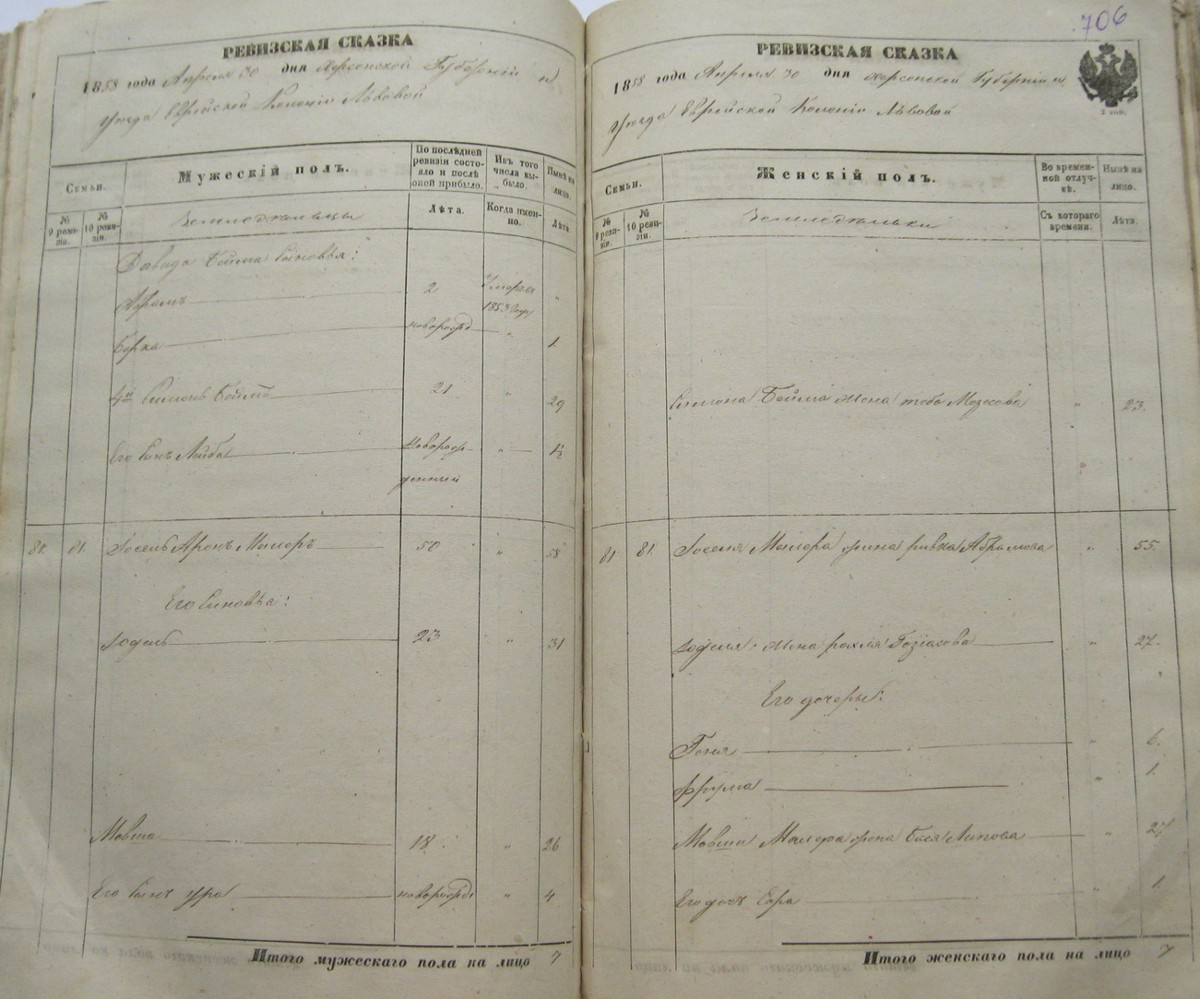 РЕВИЗСКАЯ СКАЗКА
1858 года Апреля 30 дня Херсонской Губерніи и
уезда Еврейской Колоніи Львовой
Семьи.
Мужескій полъ.
По последней ревизіи состояло и после оной прибыло.
Изъ того числа выбыло.
Ныне на лицо.
№ 9 ревизіи.
№ 10 ревизіи.
Земледельцы
Лѣта.
Когда именно.
Лѣта.
Давида Бейма сыновья:
Абрамъ 2 Умеръ 1853 года "
Берка новорожд " 1
4й Симонъ Беймъ 21 " 29
Его сынъ Лейба новорожденный " 1½
81. 81. Іосель Аронъ Меллеръ 50 " 58
Его сыновья:
Іодель 23 " 31
Мовша 18 " 26
Его сынъ новорожд " 4
Итого мужескаго пола на лицо 7
706
РЕВИЗСКАЯ СКАЗКА
1858 года Апреля 30 дня Херсонской Губерніи и
уезда Еврейской Колоніи Львовой
Семьи.
Женскій полъ.
Во временной отлучкѣ.
Ныне на лицо.
№ 9 ревизіи.
№ 10 ревизіи.
Земледельки
Съ котораго времени.
Лѣта.
Симона Бейма жена Мозесова " 23.
81 81. Іоселя Меллера жена Ривка Абрамова " 55.
Іоделя жена Рохля " 27.
Его дочеры:
Геня " 6.
Фрума " 1.
Мовши Меллера жена Бася Липова " 27
Его дочь Сора 1.
Итого женскаго пола на лицо 7